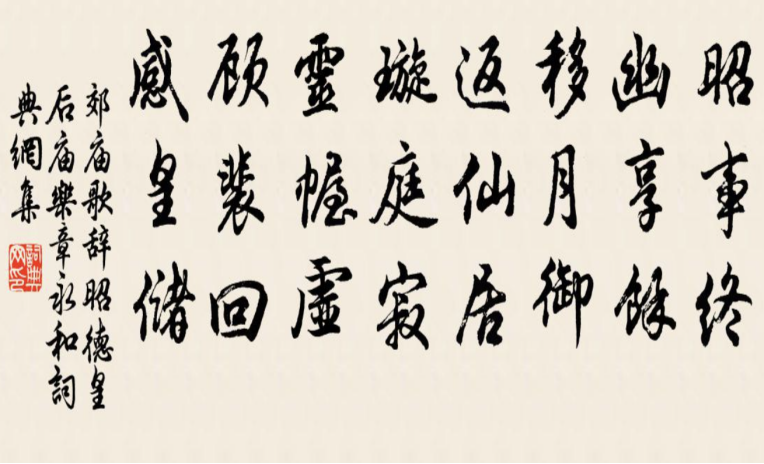 昭事终
幽享馀
移月御
返仙居
璇庭寂
靈幄虚
顾裴回
感皇储
郊庙歌辞昭德皇
后庙樂章永和詞
典網集
詞典
网印